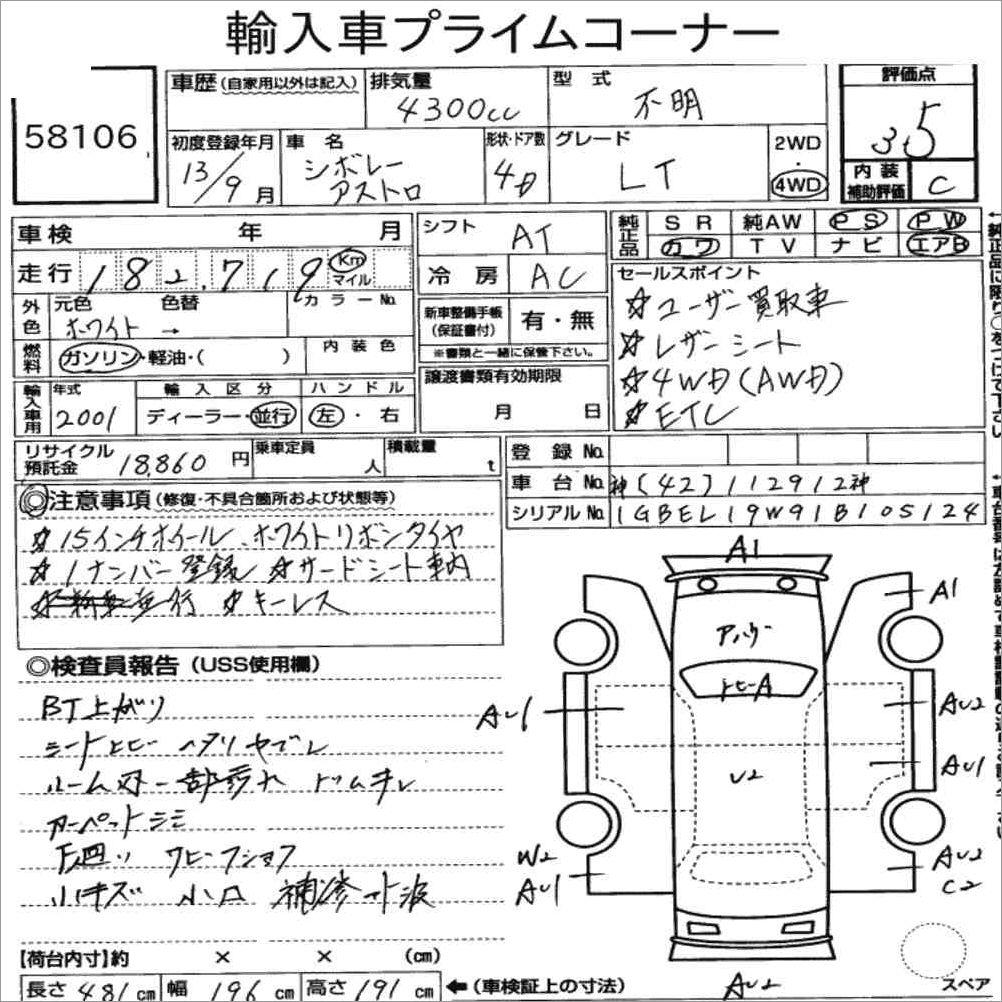 輸入車プライムコーナー
58106
車歴 (自家用以外は記入)
排気量
4300cc
型式
不明
評価点
3.5
初度登録年月
13/9月
車名
シボレー
アストロ
形状・ドア数
4D
グレード
LT
2WD
・
4WD
内装
補助評価
C
車検 年 月
走行 182,719 Km
マイル
シフト
AT
冷房
AC
純正品
SR 純AW PS PW
カワ TV ナビ エアB
外色
元色 色替
ホワイト →
カラーNo.
燃料
ガソリン・軽油・( )
内装色
新車整備手帳
(保証書付)
有・無
※書類と一緒に保管下さい。
セールスポイント
☆ユーザー買取車
☆レザーシート
☆4WD(AWD)
☆ETC
輸入車用
年式
2001
輸入区分
ディーラー・並行
ハンドル
左・右
譲渡書類有効期限
月 日
リサイクル
預託金 18,860 円
乗車定員
人
積載量
t
登録No.
車台No. 神(42)112912神
シリアルNo. 1GBEL19W91B105124
◎注意事項 (修復・不具合箇所および状態等)
☆15インチホイール、ホワイトリボンタイヤ
☆1ナンバー登録 ☆サードシート車内
並行 ☆キーレス
◎検査員報告 (USS使用欄)
BT上がり
シートヒビ ヘタリ ヤブレ
カーペットシミ
小キズ 小凹
A1
A1
トビーA
AU1
AU2
AU1
U2
W2
AU1
AU2
C2
AU2
スペア
【荷台内寸】約 × × (cm)
長さ 481 cm 幅 196 cm 高さ 191 cm ←(車検証上の寸法)